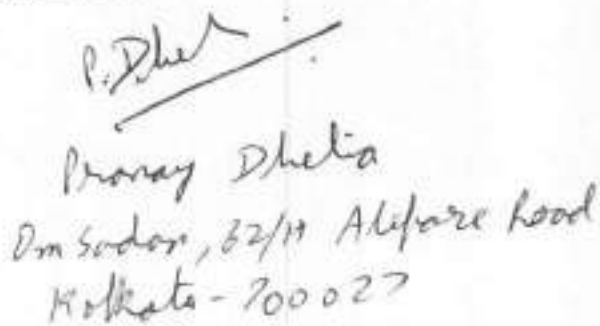 P. Dhel
Pranay Dhelia
Om Sadan, 32/H Alipore Road
Kolkata - 700027